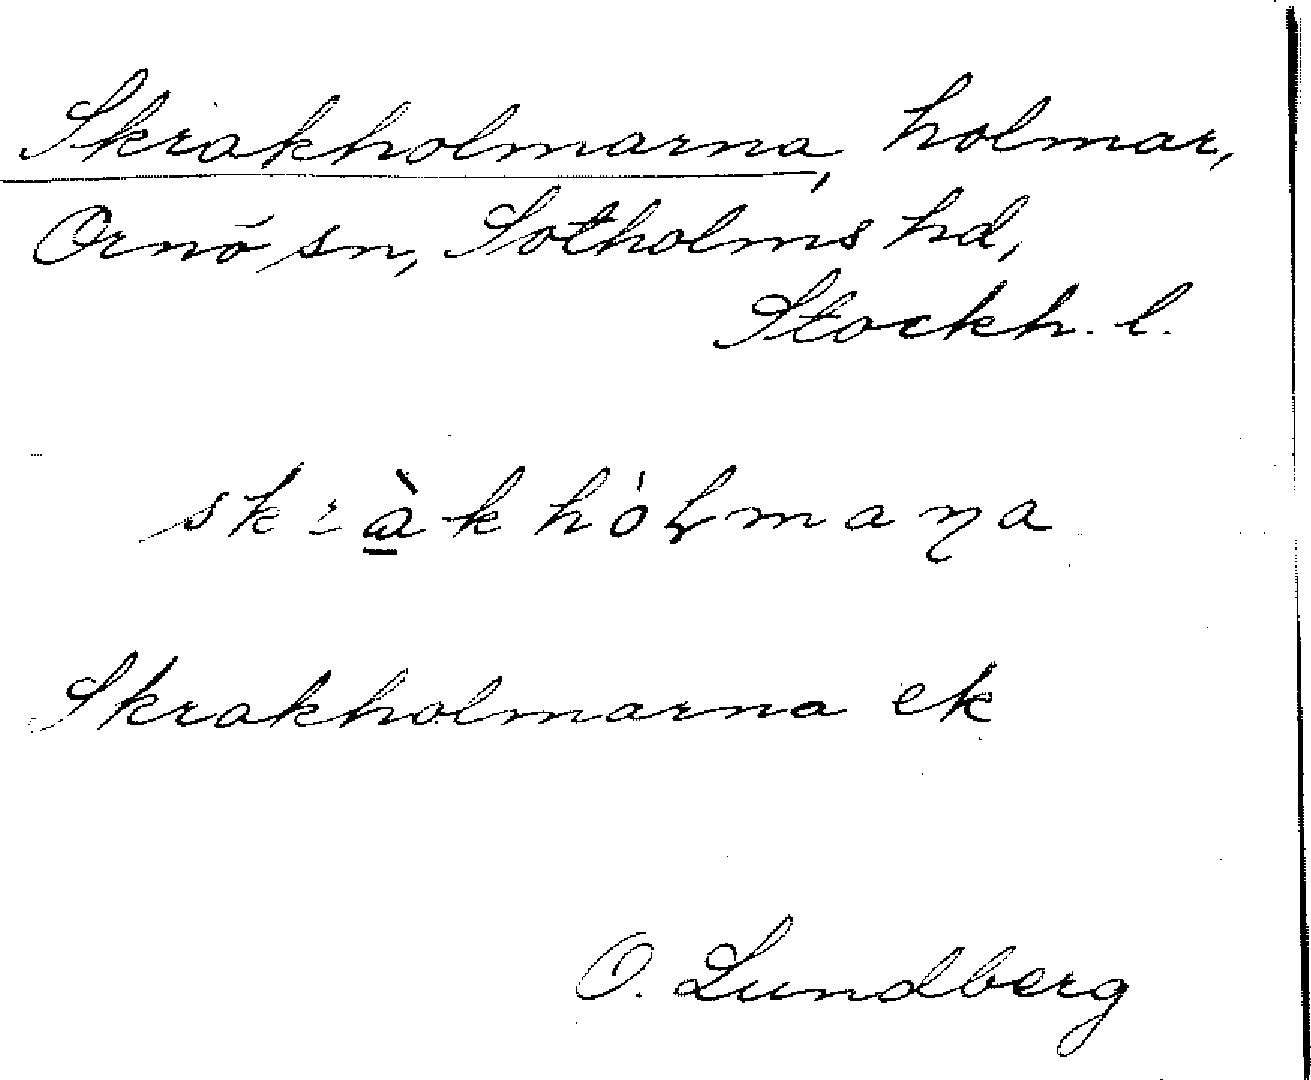 Skrakholmarna, holmar,
Ornö sn, Sotholms hd,
Stockh. l.
skrà̱khóɫmaṇa
Skrakholmarna ek
O. Lundberg